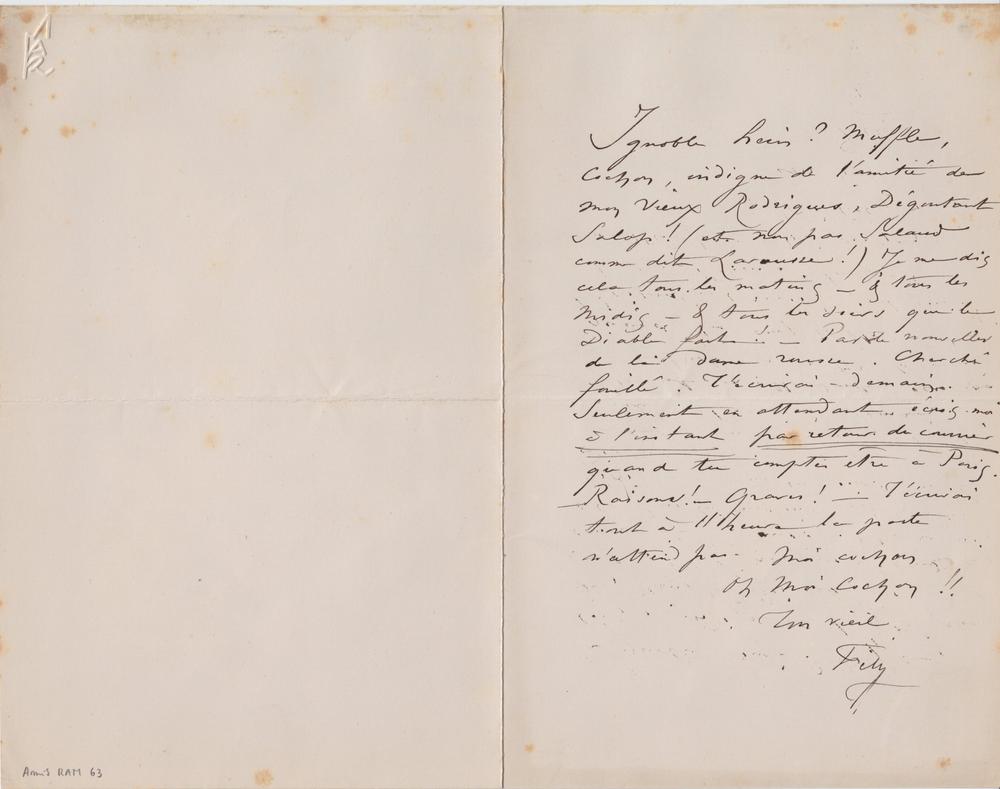 Ignoble hein ? Muffle,
Cochon, indigne de l'amitié de
mon Vieux Rodrigues, Dégoutant
Salop ! (et non pas Salaud
comme dit Larousse !) Je me dis
cela tous les matins – & tous les
Midis – & tous les soirs que le
Diable fait ! – Pas de nouvelles
de la dame rousse. Cherché
fouillé. T'écrirai – demain.
Seulement en attendant écris moi
à l'instant par retour du courrier
quand tu comptes être à Paris.
Raisons ! – Graves ! – T'écrirai
tout à l'heure la poste
n'attend pas. Moi cochon
Oh Moi Cochon !!
Ton vieil
Fély
Amis RAM 63